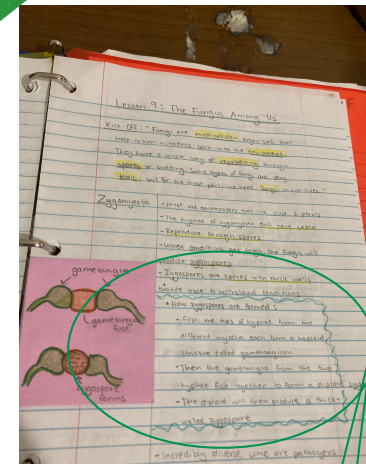 Lesson 9: The Fungus Among Us
Kick-Off: "Fungi are multicellular organisms that
help return nutrients back into the environment.
They have a unique way of reproducing through
spores or budding. Some types of fungi are very
toxic, but for the most parts we need fungi in our lives."
Zygomycota
- Most are decomposers that live close to plants
- The hyphae of zygomycota don't have septa
- Reproduce through spores
- When conditions get tough the fungus will
produce zygospores
- Zygospores are spores with thick walls
that're able to withstand conditions
How zygospores are formed:
- First, the tips of hyphae from two
different mycelia each form a haploid
structure called gametangium
- Then the gametangia from the two
hyphae fuse together to form a diploid
- The diploid will then produce a thick-
walled zygospore
- Incredibly diverse, some are pathogens
gametangia
gametangia
fuse
zygospore
forms